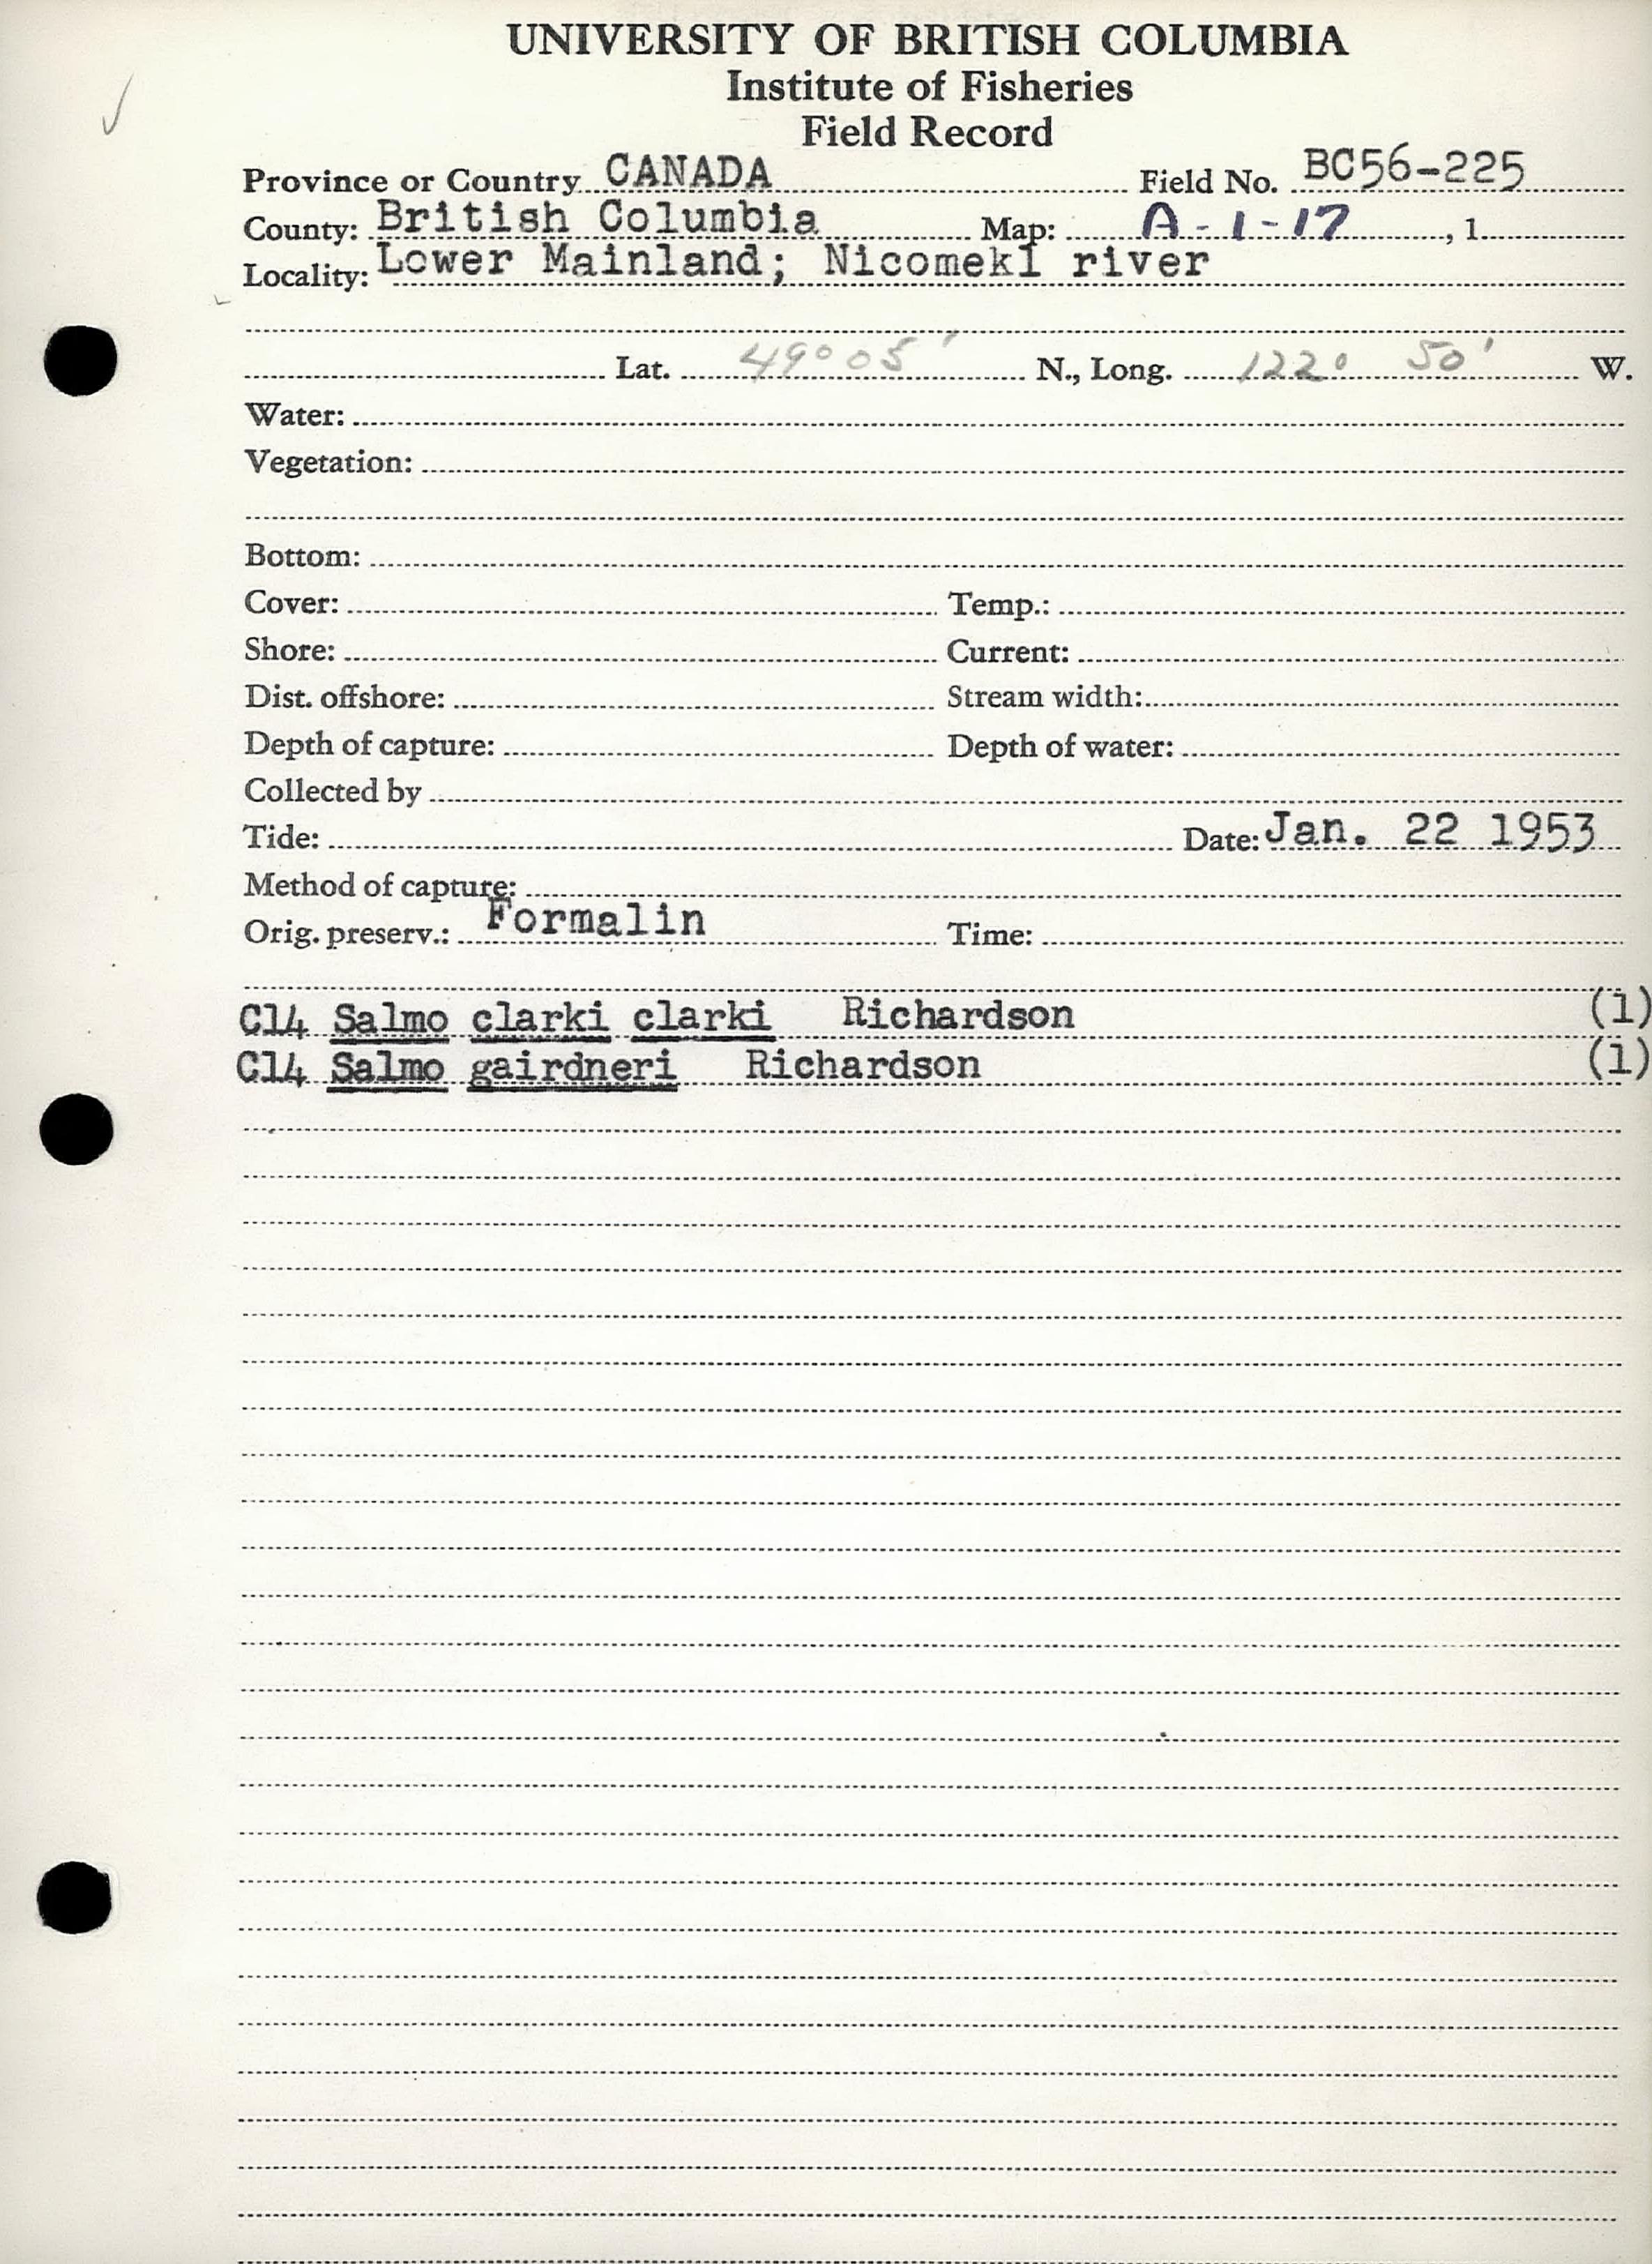 UNIVERSITY OF BRITISH COLUMBIA
Institute of Fisheries
Field Record
Province or Country CANADA Field No. BC56-225
County: British Columbia Map: A-1-17, 1
Locality: Lower Mainland; Nicomekl river
Lat. 49° 05' N., Long. 122° 50' W.
Water:
Vegetation:
Bottom:
Cover: Temp.:
Shore: Current:
Dist. offshore: Stream width:
Depth of capture: Depth of water:
Collected by
Tide: Date: Jan. 22 1953
Method of capture:
Orig. preserv.: Formalin Time:
C14 Salmo clarki clarki Richardson (1)
C14 Salmo gairdneri Richardson (1)